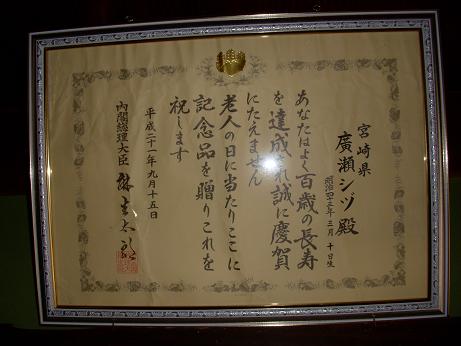 宮崎県
廣瀬シヅ殿
明治四十三年三月十日生
あなたはよく百歳の長寿
を達成され誠に慶賀
にたえません
老人の日に当たりここに
記念品を贈りこれを
祝します
平成二十一年九月十五日
内閣総理大臣 麻生太郎